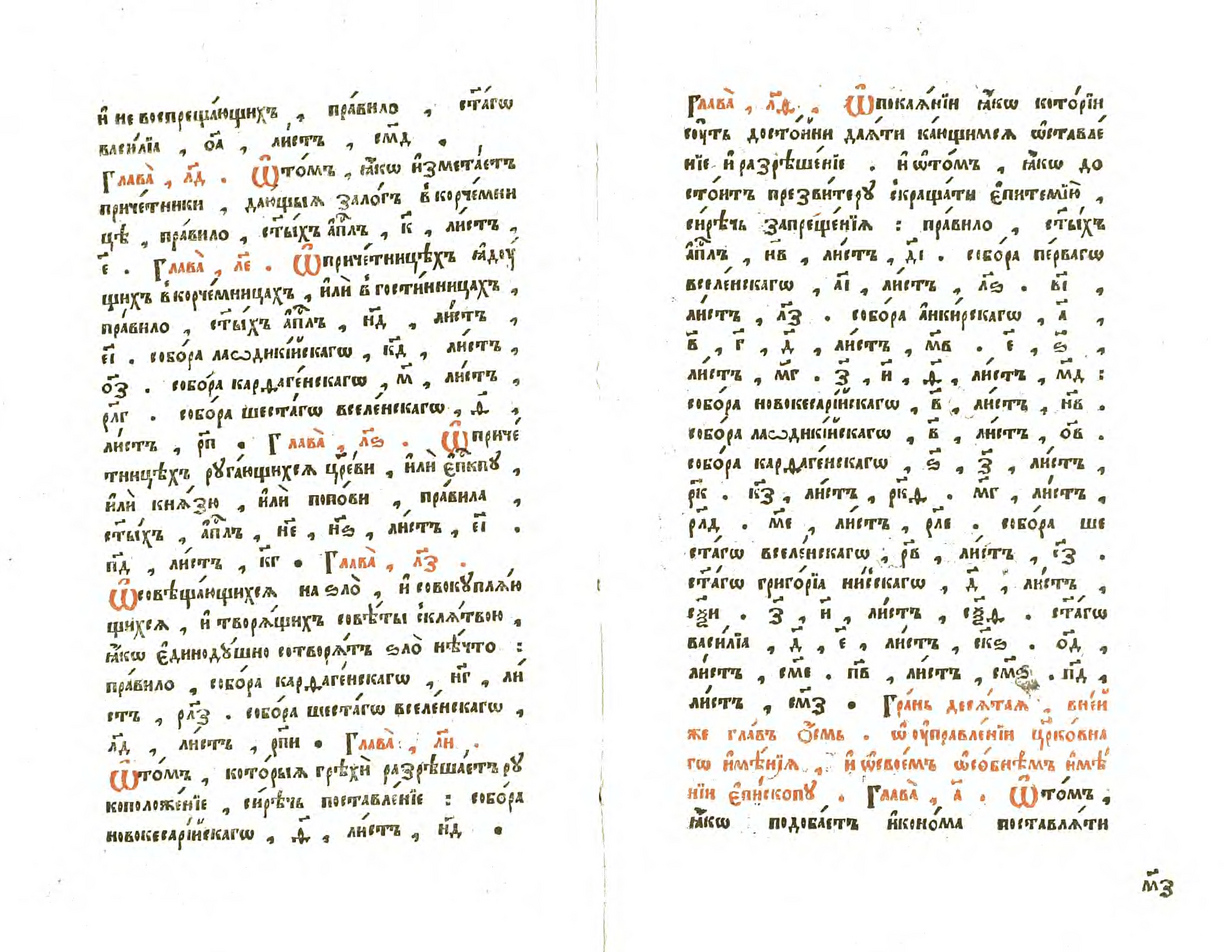 и҆ не воспреща́ющихъ , пра́вило , ст҃а́гѡ
васи́лїа , о҃а , ли́стъ , см҃д .
Глава̀ , л҃д . Ѡ҆то́мъ , ꙗ҆́кѡ и҆змета́етъ
приче́тники , даю́щыѧ зало́гъ в̾корче́мни
цѣ , пра́вило , ст҃ы́хъ а҆пⷭ҇лъ , к҃ , ли́стъ ,
є҃ . Глава̀ , л҃є . Ѡ҆приче́тницѣхъ ꙗ҆доу́
щихъ в̾корче́мницахъ , и҆лѝ в̾гости́нницахъ ,
пра́вило , ст҃ы́хъ а҆пⷭ҇лъ , н҃д , ли́стъ ,
є҃і . собо́ра лаѡдикі́йскагѡ , к҃д , ли́стъ ,
о҃з . собо́ра карѳаге́нскагѡ , м҃ , ли́стъ ,
рл҃г . собо́ра шеста́гѡ вселе́нскагѡ , ѳ҃ ,
ли́стъ , рп҃ . Глава̀ , л҃ѕ . Ѡ҆приче́
тницѣхъ руга́ющихсѧ цр҃е́ви , и҆лѝ є҆пⷭ҇кпꙋ ,
и҆лѝ кнѧ́зю , и҆лѝ попо́ви , пра́вила ,
ст҃ы́хъ , а҆пⷭ҇лъ , н҃є , н҃ѕ , ли́стъ , є҃і .
п҃д , ли́стъ , к҃г . Глава̀ , л҃з .
Ѡ҆совѣща́ющихсѧ на ѕло̀ , и҆ совокуплѧ́ю
щихсѧ , и҆ творѧ́щихъ совѣ́ты с̾клѧ́твою ,
ꙗ҆́кѡ є҆диноду́шно сотворѧ́тъ ѕло̀ нѣ́что :
пра́вило , собо́ра карѳаге́нскагѡ , н҃г , ли́
стъ , рл҃з . собо́ра шеста́гѡ вселе́нскагѡ ,
л҃д , ли́стъ , рп҃и . Глава̀ , л҃и .
Ѡ҆то́мъ , кото́рыѧ грѣхѝ разрѣша́етъ ру
коположе́нїе , си́рѣчь поставле́нїе : собо́ра
новокесарі́йскагѡ , ѳ҃ , ли́стъ , н҃д .
Глава̀ , л҃ѳ . Ѡ҆покаѧ́нїи ꙗ҆́кѡ кото́рїи
сꙋ́ть досто́йни даѧ́ти ка́ющимсѧ ѡ҆ставле́
нїе и҆ разрѣше́нїе . и҆ ѡ҆то́мъ , ꙗ҆́кѡ до
сто́итъ презви́терꙋ с̾краща́ти є҆питемі́ю ,
си́рѣчь запреще́нїѧ : пра́вило , ст҃ы́хъ
а҆пⷭ҇лъ , н҃в , ли́стъ , д҃і . собо́ра пе́рвагѡ
вселе́нскагѡ , а҃і , ли́стъ , л҃ѕ . в҃і ,
ли́стъ , л҃з . собо́ра а҆нки́рскагѡ , а҃ ,
в҃ , г҃ , д҃ , ли́стъ , м҃в . є҃ , ѕ҃ ,
ли́стъ , м҃г . з҃ , и҃ , ѳ҃ , ли́стъ , м҃д :
собо́ра новокесарі́йскагѡ , в҃ , ли́стъ , н҃в .
собо́ра лаѡдикі́йскагѡ , в҃ , ли́стъ , о҃в .
собо́ра карѳаге́нскагѡ , ѕ҃ , з҃ , ли́стъ ,
рк҃ . к҃з , ли́стъ , рк҃ѳ . м҃г , ли́стъ ,
рл҃д . м҃є , ли́стъ , рл҃є . собо́ра ше
ста́гѡ вселе́нскагѡ , р҃в , ли́стъ , с҃з .
ст҃а́гѡ григо́рїа ни́сскагѡ , д҃ , ли́стъ ,
сѯ҃и . з҃ , и҃ , ли́стъ , сѯ҃ѳ . ст҃а́гѡ
васи́лїа , д҃ , є҃ , ли́стъ , ск҃ѕ . о҃д ,
ли́стъ , см҃є . п҃в , ли́стъ , см҃ѕ . п҃д ,
ли́стъ , см҃з . Гра́нь десѧ́таѧ , в̾не́й
же гла́въ ѻ҆́смь . ѡ҆ ᲂу҆правле́нїи цр҃ко́вна
гѡ и҆мѣ́нїѧ , и҆ ѡ҆свое́мъ ѡ҆со́бнѣмъ и҆мѣ́
нїи є҆пи́скопꙋ . Глава̀ , а҃ . Ѡ҆то́мъ ,
ꙗ҆́кѡ подоба́етъ и҆коно́ма поставлѧ́ти
м҃з